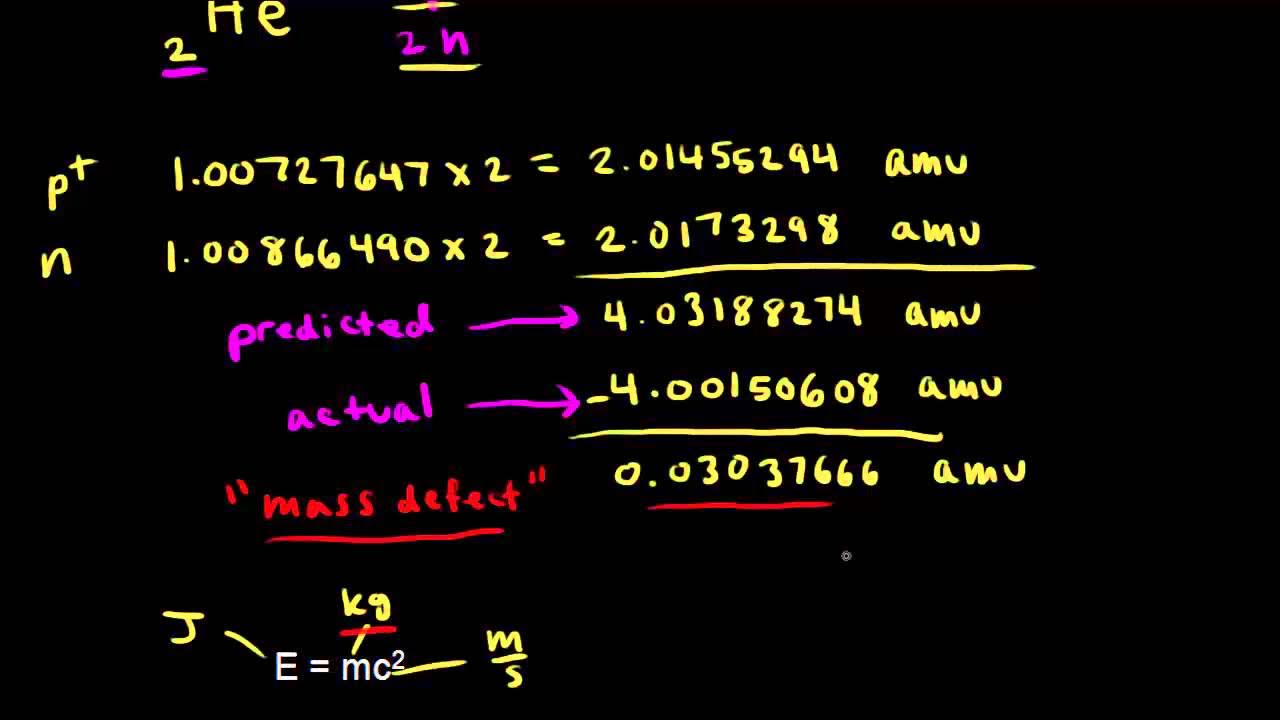 He
2
2 n
p+ 1.00727647 x 2 = 2.01455294 amu
n 1.00866490 x 2 = 2.0173298 amu
predicted → 4.03188274 amu
actual → -4.00150608 amu
"mass defect" 0.03037666 amu
J kg m/s
E = mc²